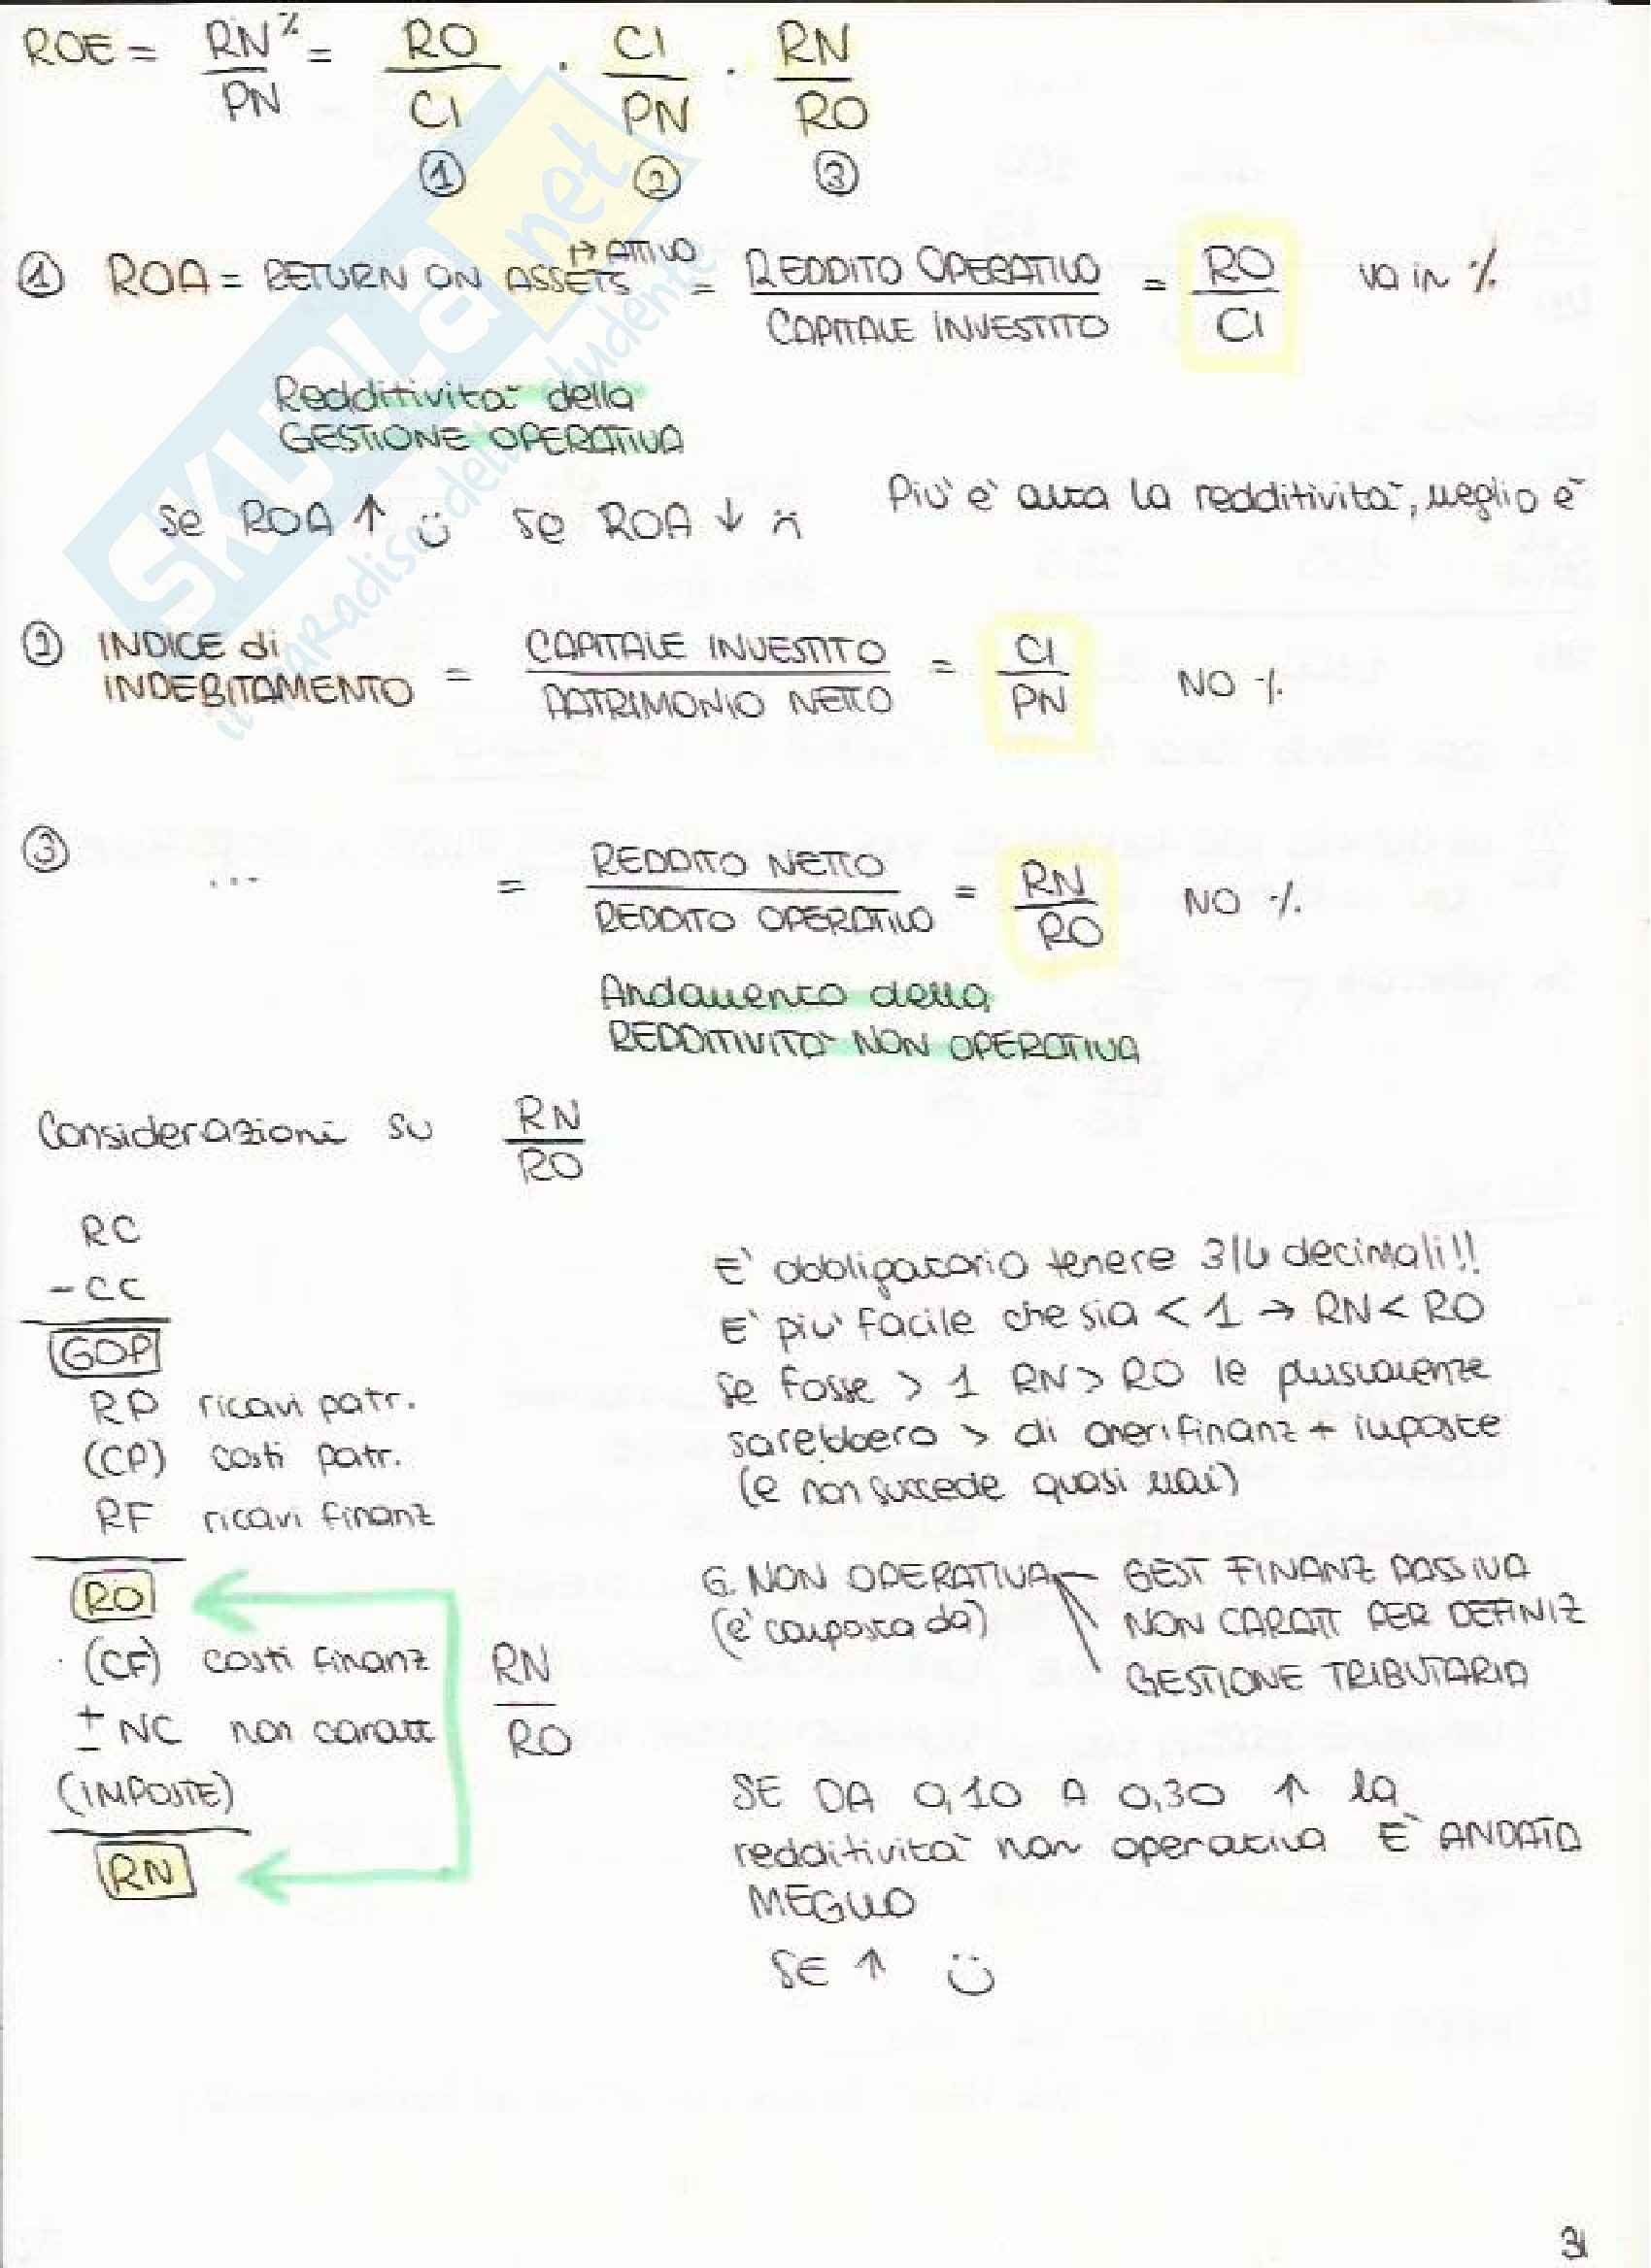 ROE = RN % = RO · CI · RN
PN CI PN RO
① ② ③
① ROA = RETURN ON ASSETS = REDDITO OPERATIVO = RO va in %
↦ ATTIVO
CAPITALE INVESTITO CI
Redditività della
GESTIONE OPERATIVA
se ROA ↑ :) se ROA ↓ :( Più è alta la redditività, meglio è
② INDICE di = CAPITALE INVESTITO = CI NO %
INDEBITAMENTO PATRIMONIO NETTO PN
③ ... = REDDITO NETTO = RN NO %
REDDITO OPERATIVO RO
Andamento della
REDDITIVITÀ NON OPERATIVA
Considerazioni su RN
RO
RC
- CC
GOP
RP ricavi patr.
(CP) costi patr.
RF ricavi finanz
RO
(CF) costi finanz RN
± NC non caratt RO
(IMPOSTE)
RN
E' obbligatorio tenere 3/4 decimali!!
E' più facile che sia < 1 → RN < RO
se fosse > 1 RN > RO le plusvalenze
sarebbero > di oneri finanz + imposte
(e non succede quasi mai)
G. NON OPERATIVA GEST FINANZ PASSIVA
(è composta da) NON CARATT PER DEFINIZ
GESTIONE TRIBUTARIA
SE DA 0,10 A 0,30 ↑ la
redditività non operativa E' ANDATA
MEGLIO
SE ↑ :)
31
SKUOLA.net
il paradiso dello studente